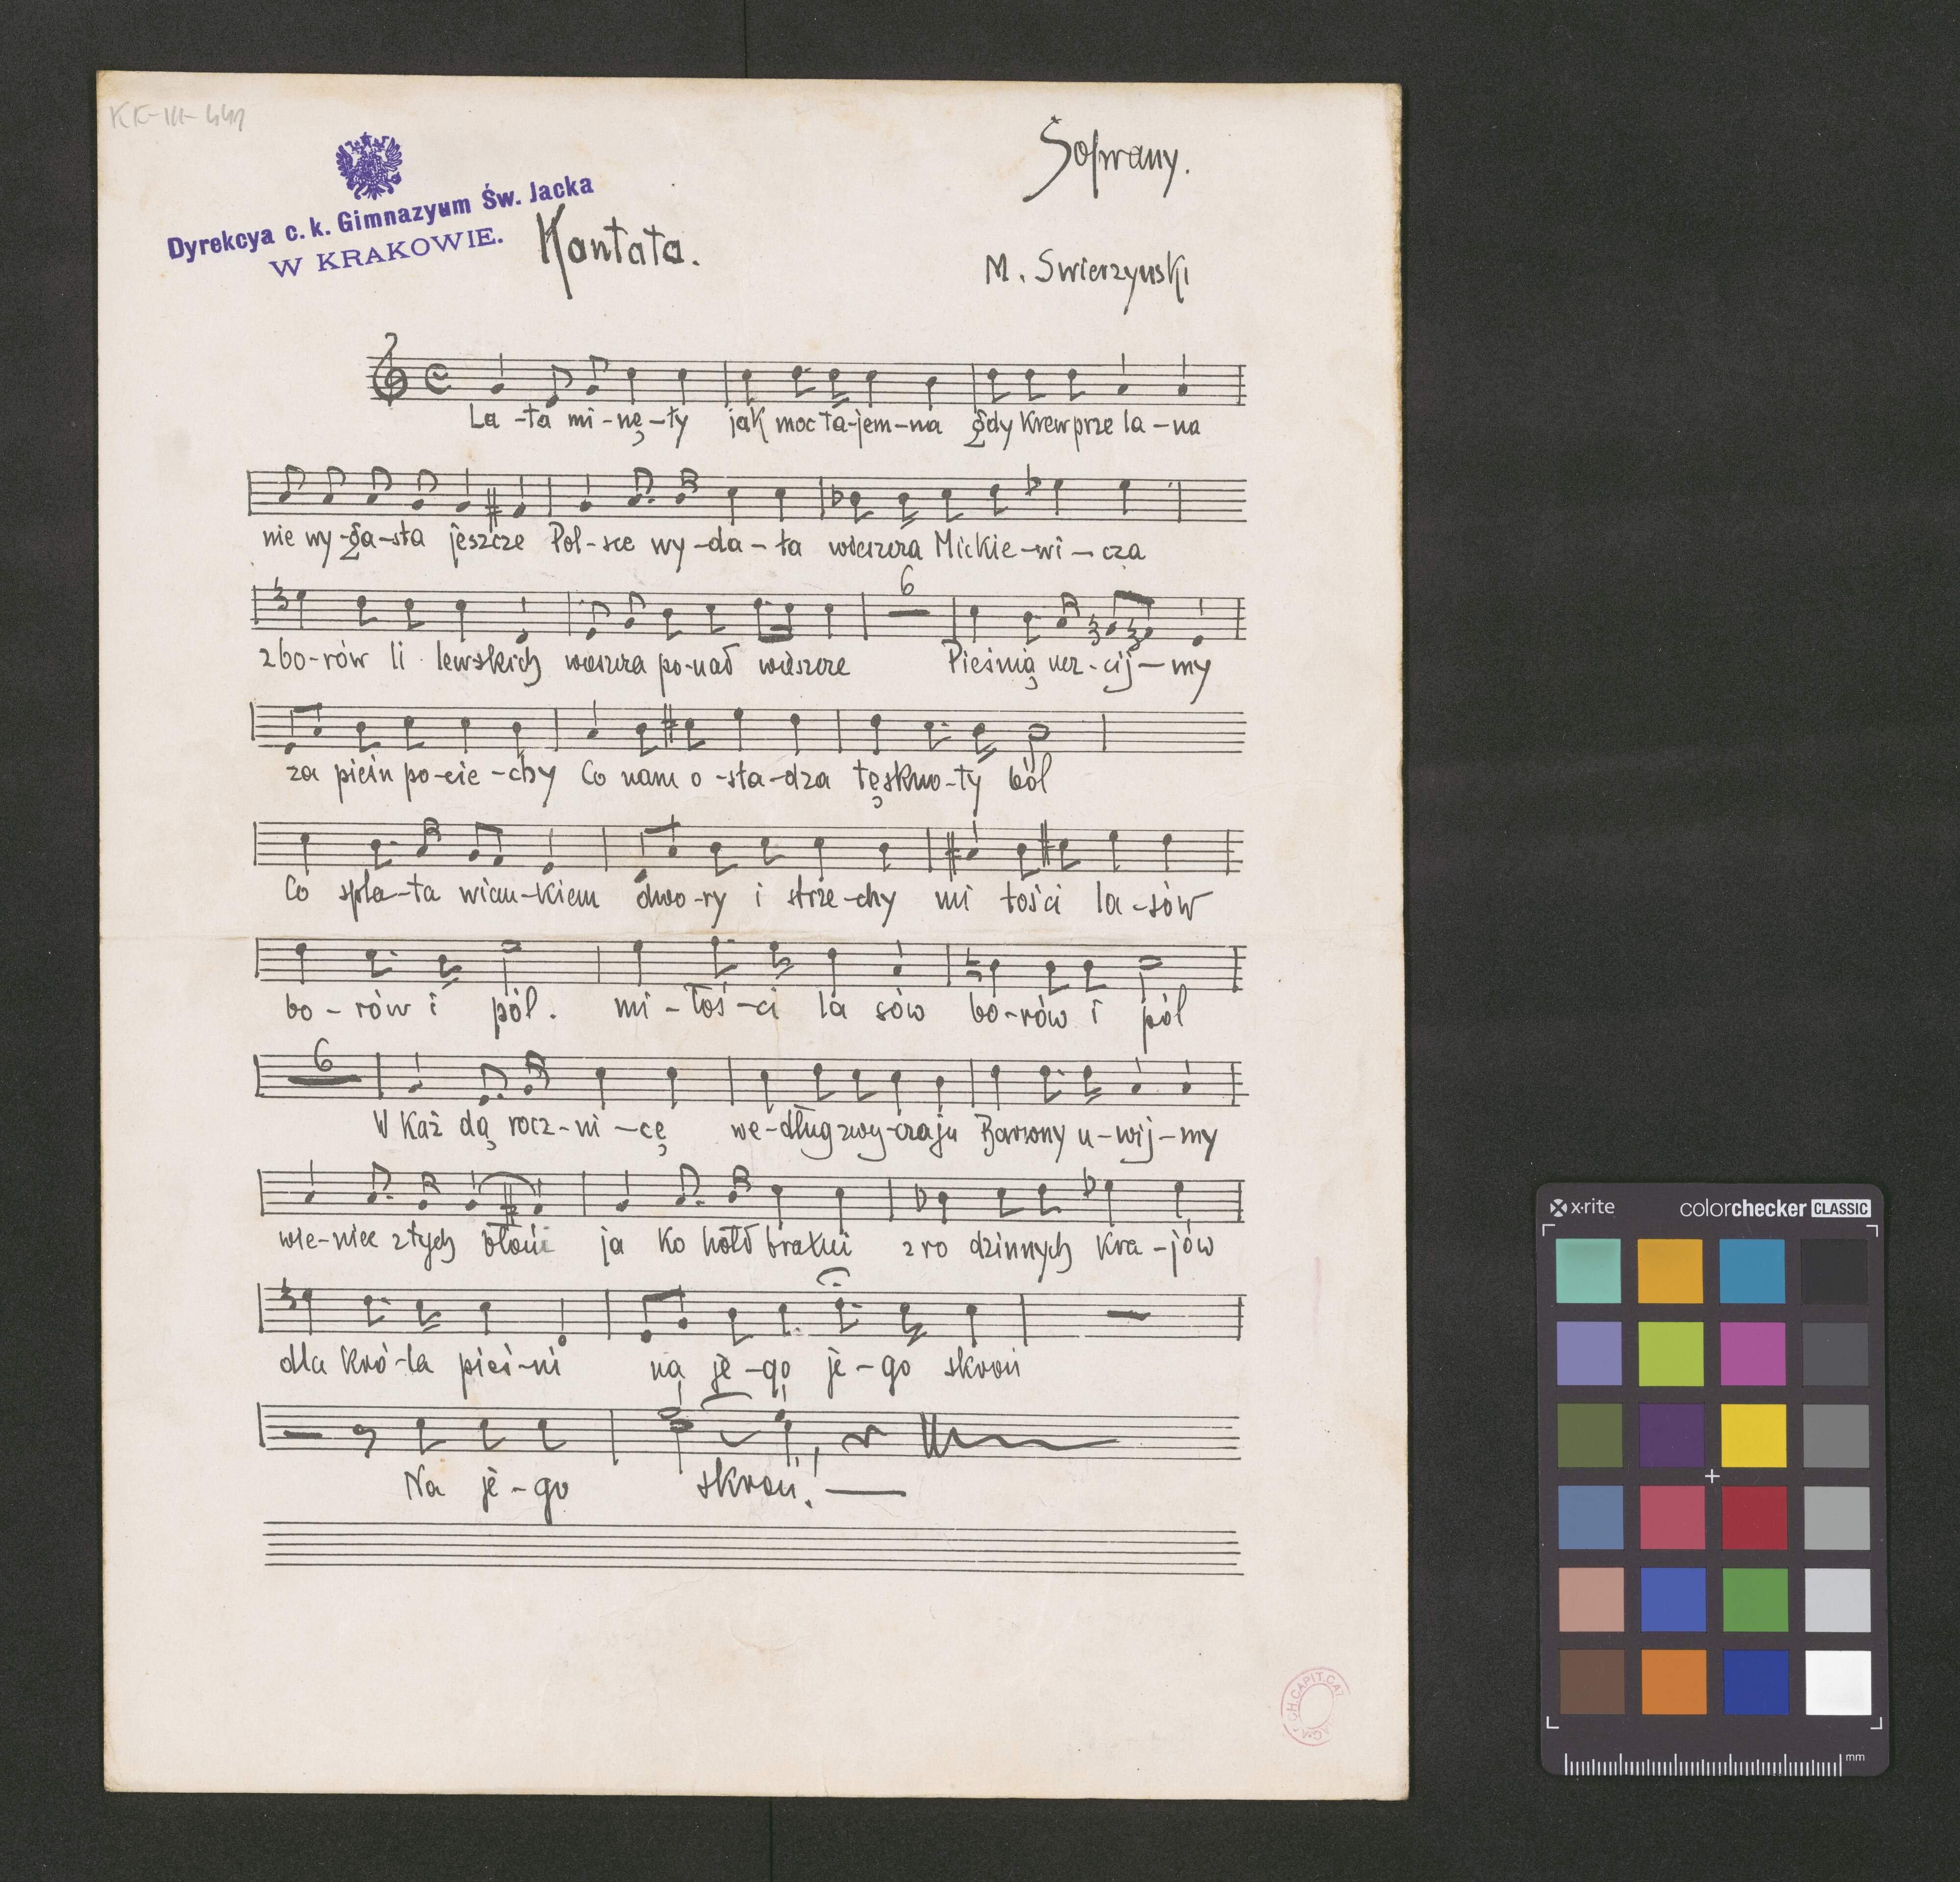 KK-III-441
Soprany.
Dyrekcya c. k. Gimnazyum Św. Jacka
W KRAKOWIE.
Kantata.
M. Swierzyński
La-ta mi-nę-ły jak moc ta-jem-na gdy krew prze la-na
nie wy-ga-sła jeszcze Pol-sce wy-da-ła wieszcza Mickie-wi-cza
6
z bo-rów li lewskich wieszcza po-nad wieszcze Pieśnią ucz-cij-my
za pieśń po-cie-chy Co nam o-sła-dza tęskno-ty ból
Co spla-ta wian-kiem dwo-ry i strze-chy mi łości la-sów
bo-rów i pól. mi-łoś-ci la sów bo-rów i pól
6
W każ dą rocz-ni-cę we-dług zwy-czaju u-wij-my
wie-niec z tych błoni ja ko hołd bratni z ro dzinnych kra-jów
dla kró-la pieś-ni na je-go je-go skroń
Na je-go skroń!
CH.CAPIT.CA
x·rite colorchecker CLASSIC
mm